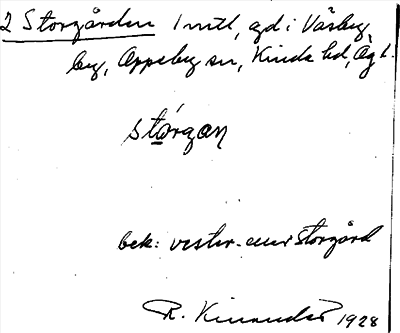 2 Storgården 1 mtl, gd i Väsby
by, Oppeby sn, Kinda hd, Ög l.
stårgan
bek: vester- eller Storgård
R. Kinander 1928